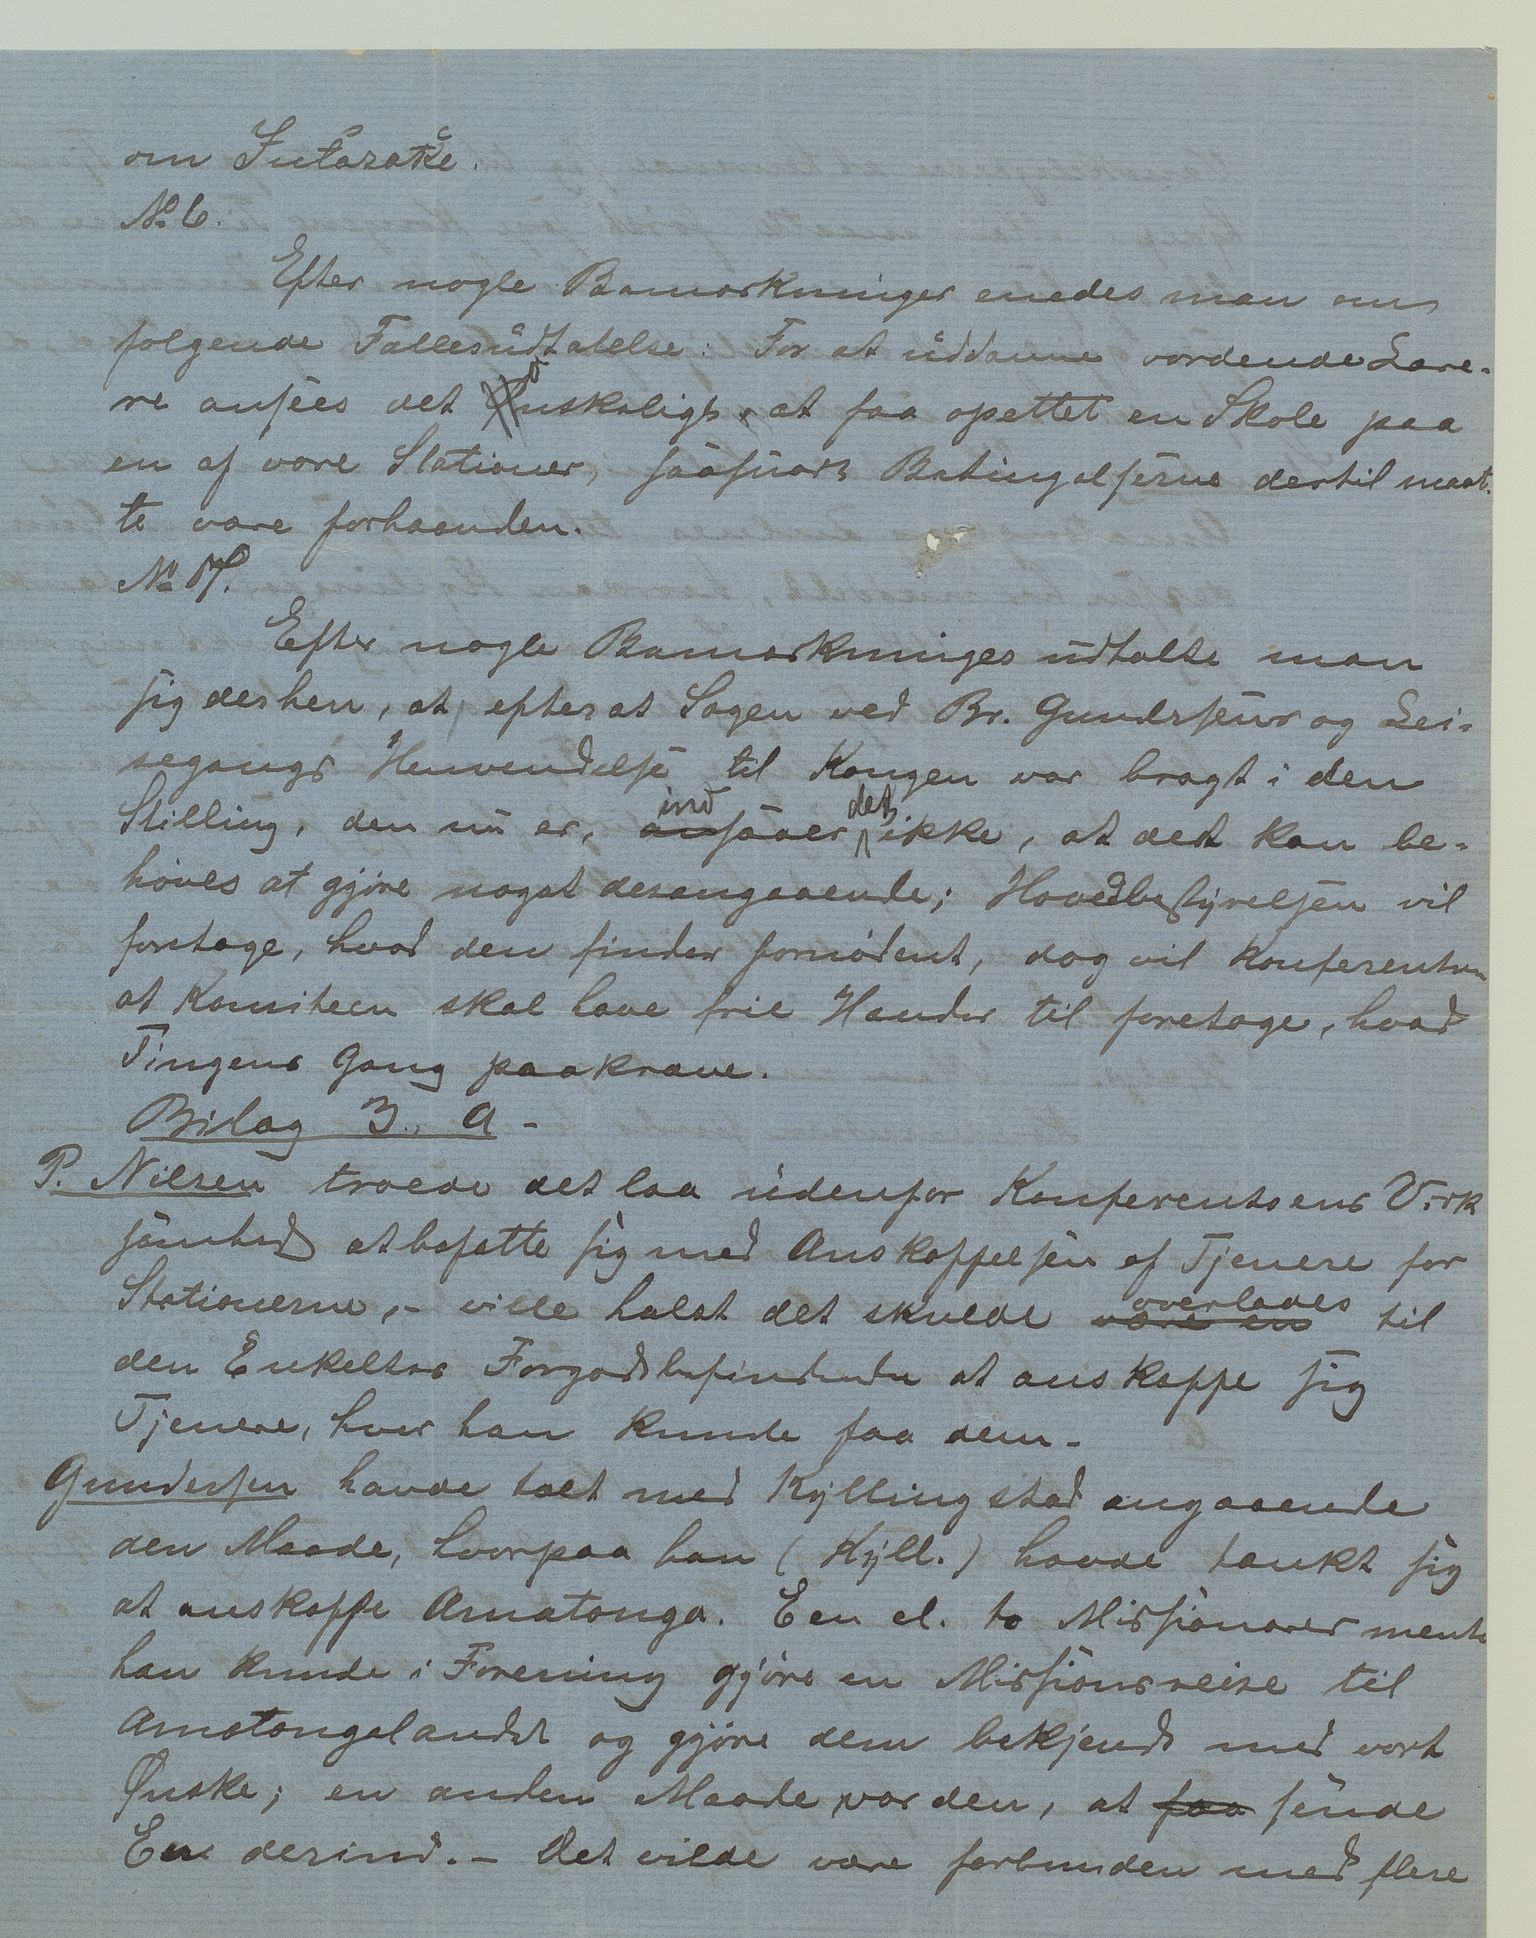 om Intasatke.
No 6.
Efter nogle Bemærkninger enedes man om
følgende Fællesudtalelse: For at uddanne vordende Lære-
re ansees det ønskeligt, at faa opettet en Skole paa
en af vore Stationer, saasnart Betingelserne dertil maat-
te være forhaanden.
No 17.
Efter nogle Bemærkninger udtalte man
sig derhen, at, efterat Sagen ved Br. Gundersens og Lei-
segangs Henvendelse til Kongen var bragt i den
Stilling, den nu er, indsaaes det ikke, at det kan be-
høves at gjøre noget desangaaende; Hovedbestyrelsen vil
foretage, hvad den finder fornødent, dog vil Konferentsen
at Komiteen skal have frie Hænder til foretage, hvad
Tingens Gang paakræve.
Bilag 3. a -
P. Nilsen troede det laa udenfor Konferentsens Virk
somhed at befatte sig med Anskaffelsen af Tjenere for
Stationerne, - vilde helst det skulde være en overlades til
den Enkeltes Forgodtbefindende at anskaffe sig
Tjenere, hvor han kunde faa dem -
Gundersen havde talt med Kyllingstad angaaende
den Maade, hvorpaa han (Kyll.) havde tænkt sig
at anskaffe Amatonga. Een el. to Missionærer mente
han kunde i Forening gjøre en Missionsreise til
Amatongalandet og gjøre dem bekjendt med vort
Ønske; en anden Maade var den, at faa sende
En derind. - Det vilde være forbunden med flere